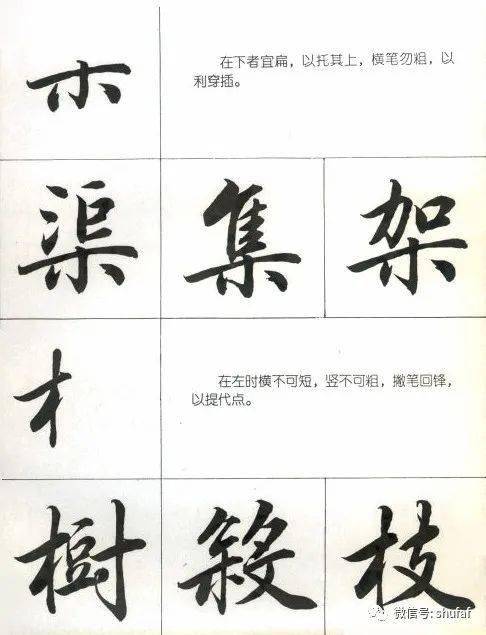 木
在下者宜扁，以托其上，横笔勿粗，以
利穿插。
渠 集 架
木
在左时横不可短，竖不可粗，撇笔回锋，
以提代点。
樹 枝
微信号: shufaf